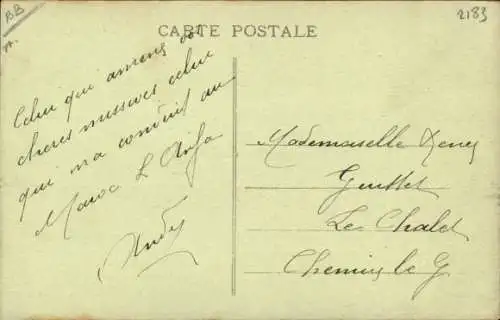 BB
2183
CARTE POSTALE
Celui qui amena vos
cheres missives celui
qui m'a conduit au
Maroc L'Anfa
Andy
Mademoiselle Deney
Guittet
Le Chalet
Chemin le G